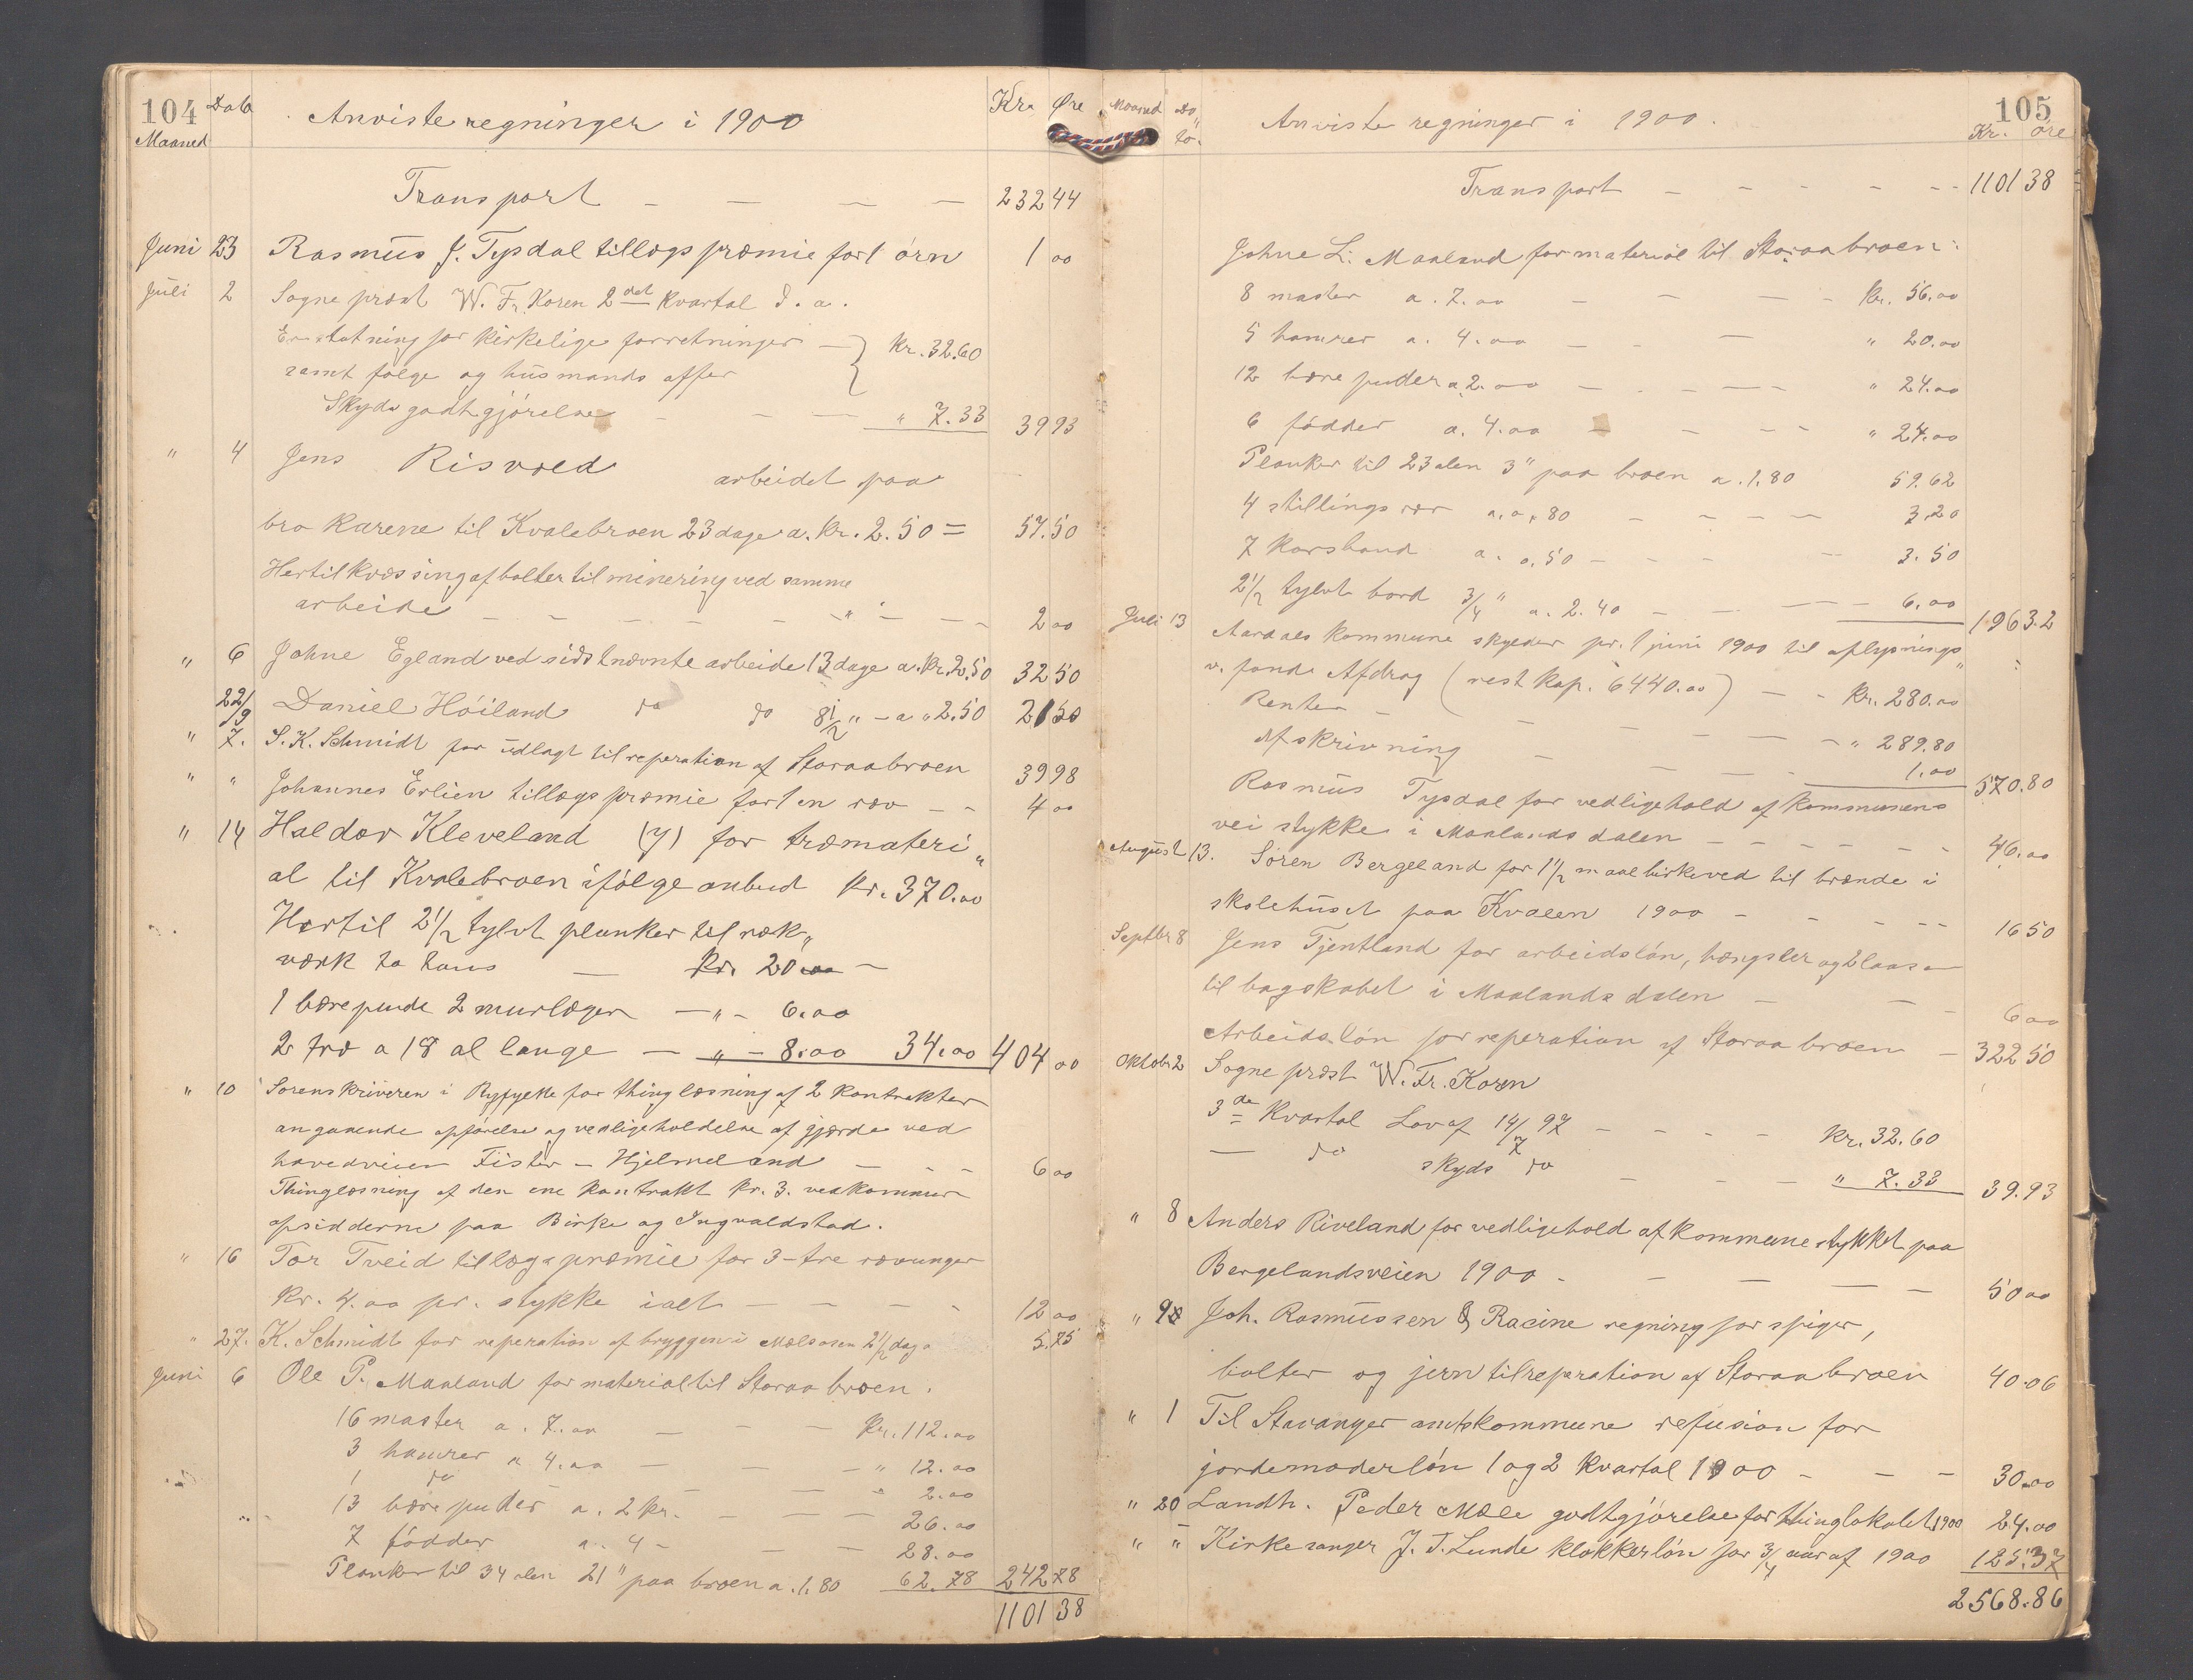 104 Dato Anviste regninger i 1900 Kr. Øre
Maaned
Transport - - - - 232 44
Juni 23 Rasmus J. Tysdal tillægspræmie for 1 örn 1 00
Juli 2 Sogneprest W. Fr. Koren 2det kvartal d. a.
Erstatning for kirkelige forretninger - Kr. 32.60
samt følge og husmands offer
Skyds godtgjörelse - - - " 7.33 39 93
" 4 Jens Risvold arbeidet paa
bro karene til Kvalebroen 23 dage a. Kr. 2.50 = 57.50
Hertil kvæssing af bolter til minering ved samme
arbeide - - - - - - " - - - 2 00
" 6 Johne Egland ved sidstnævnte arbeide 13 dage a. Kr. 2.50 32 50
22/9 Daniel Höiland do do 8 1/2 " - a " 2.50 21 50
" 7. S. K. Schmidt for udlagt til reperation af Storaabroen 39 98
" " Johannes Erlien tillægspræmie for 1 en ræv - - 4 00
" 14 Haldor Kleveland (7) for træmateri„
al til Kvalebroen ifölge anbud Kr. 370.00
Hertil 2 1/2 tylvt planker til ræk„
værk - Kr. 20.00 -
1 bærepude 2 murlæger - " - 6.00
2 træ a 18 al lange - " - 8.00 34.00 404 00
" 10 Sorenskriveren i Ryfylke for thinglæsning af 2 kontrakter
angaaende opförelse og vedligeholdelse af gjærde ved
hovedveien Fister - Hjelmeland - - - 6 00
Thinglæsning af den ene kontrakt kr. 3. vedkommer
opsidderne paa Birke og Ingvaldstad.
" 16 Tor Tveid tillægspræmie for 3-tre rævunger
Kr. 4.00 pr. stykke ialt - - - - 12 00
" 27. K. Schmidt for reperation af bryggen i Mælsosen 2 1/2 dag 5.75
Juni 6 Ole P. Maaland for material til Storaabroen.
16 master a. 7.00 - - - Kr. 112.00
3 hamrer a 4.00 - - - " 12.00
1 do - " 2.00
13 bærepuder a. 2 kr. - - - 26.00
7 födder a. 4 - - - 28.00
Planker til 34 alen 21" paa broen a. 1.80 62.78 242 78
1101 38
Maaned Da„ Anviste regninger i 1900. 105
to. Kr. Øre
Transport - - - - - - 1101 38
Johne L. Maaland for material til Storaabroen:
8 master a. 7.00 - - - - Kr. 56.00
5 hamrer a. 4.00 - - - " 20.00
12 bærepuder a. 2.00 - - - - - " 24.00
6 födder a. 4.00 - - - - " 24.00
Planker til 23 alen 3" paa broen a. 1.80 59.62
4 stillings rær a. 0,80 - - - - 3.20
7 Korsbaand a. 0.50 - - - - 3.50
2 1/2 tylvt bord 3/4" a. 2.40 - - - - 6.00 196 32
Juli 13 Aardals kommune skylder pr. 1 juni 1900 til oplysnings„
v. fonds Afdrag (rest kap. 6440.00) - - Kr. 280.00
Renter - - - - - - " 289.80
Afskrivning - - - - 1.00 570.80
Rasmus Tysdal for vedligehold af kommunens
vei stykke i Maalandsdalen - - - - - - 46.00
August 13. Sören Bergeland for 1 1/2 maal birkeved til brænde i
skolehuset paa Kvalen 1900 - - - - - 16 50
Septbr 8 Jens Tjentland for arbeidslön, hængsler og 2 laase
til bogskabet i Maalandsdalen - - 6 00
Arbeidslön for reperation af Storaabroen - 322 50
Oktober 2 Sogneprest W. Fr. Koren
3de Kvartal Lov af 14/7 97 - - - - Kr. 32.60
- do skyds do - - - " 7.33 39.93
" 8 Anders Riveland for vedligehold af kommunestykket paa
Bergelandsveien 1900 - - - - - 50 00
" 9 Joh. Rasmussen & Racine regning for spiger,
bolter og jern til reperation af Storaabroen 40.06
" 1 Til Stavanger amtskommune refusion for
jordemoderlön 1 og 2 Kvartal 1900 - - - 30.00
" 20 Landh. Peder Mæle godtgjörelse for thinglokalet 1900 24.00
" " Kirkesanger J. T. Lunde klokkerlön for 3/4 aar af 1900 125.37
2568.86